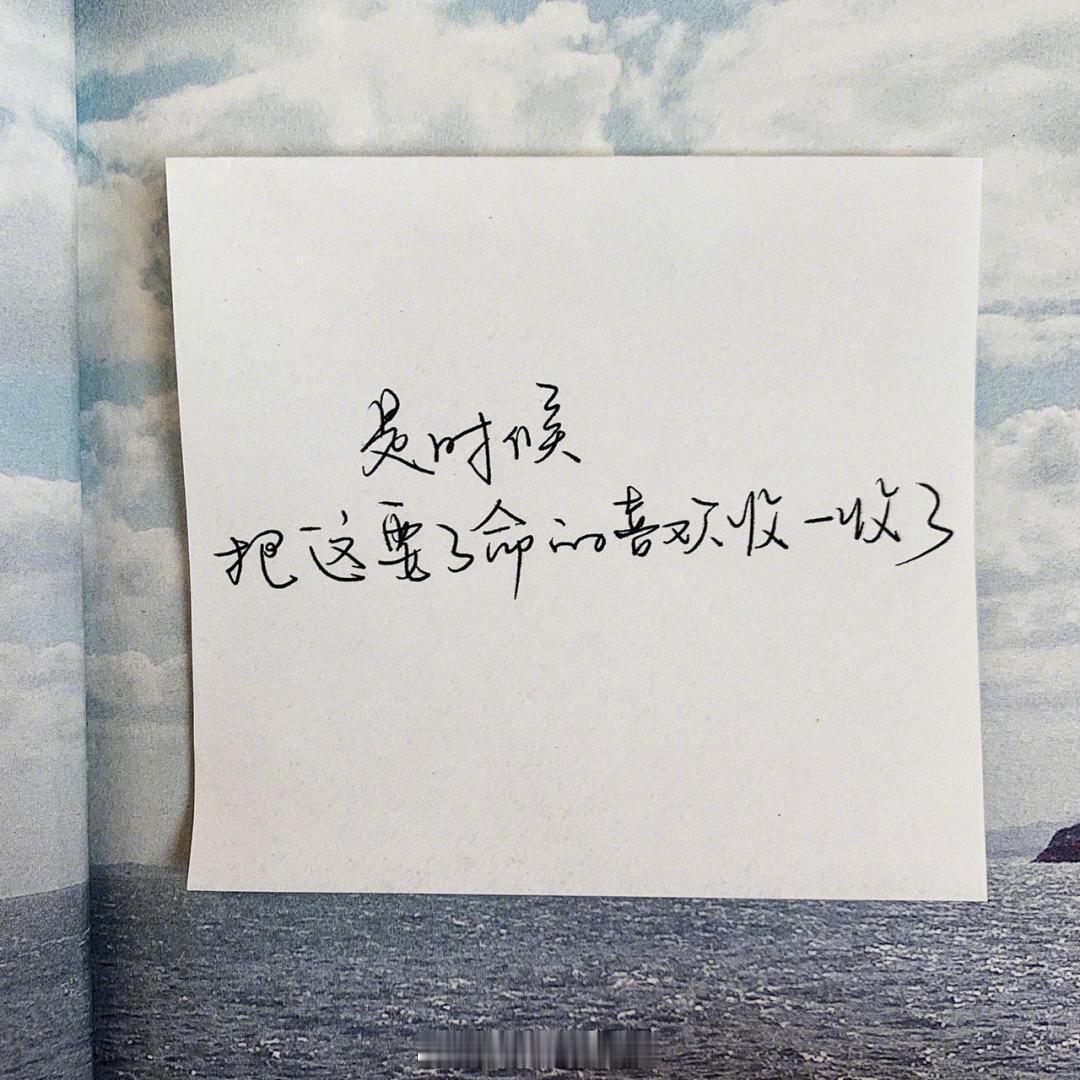 是时候
把这要了命的喜欢收一收了